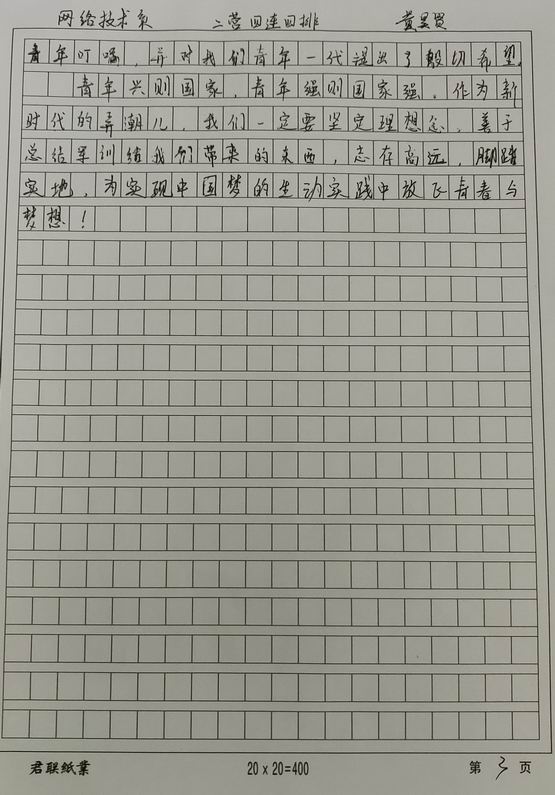 网络技术系 二营四连四排 黄昱贤
青年叮嘱，并对我们青年一代提出了殷切希望。
青年兴则国家，青年强则国家强。作为新
时代的弄潮儿，我们一定要坚定理想念，善于
总结军训给我们带来的东西，志存高远，脚踏
实地，为实现中国梦的生动实践中放飞青春与
梦想！
君联纸业 20 x 20=400 第 3 页